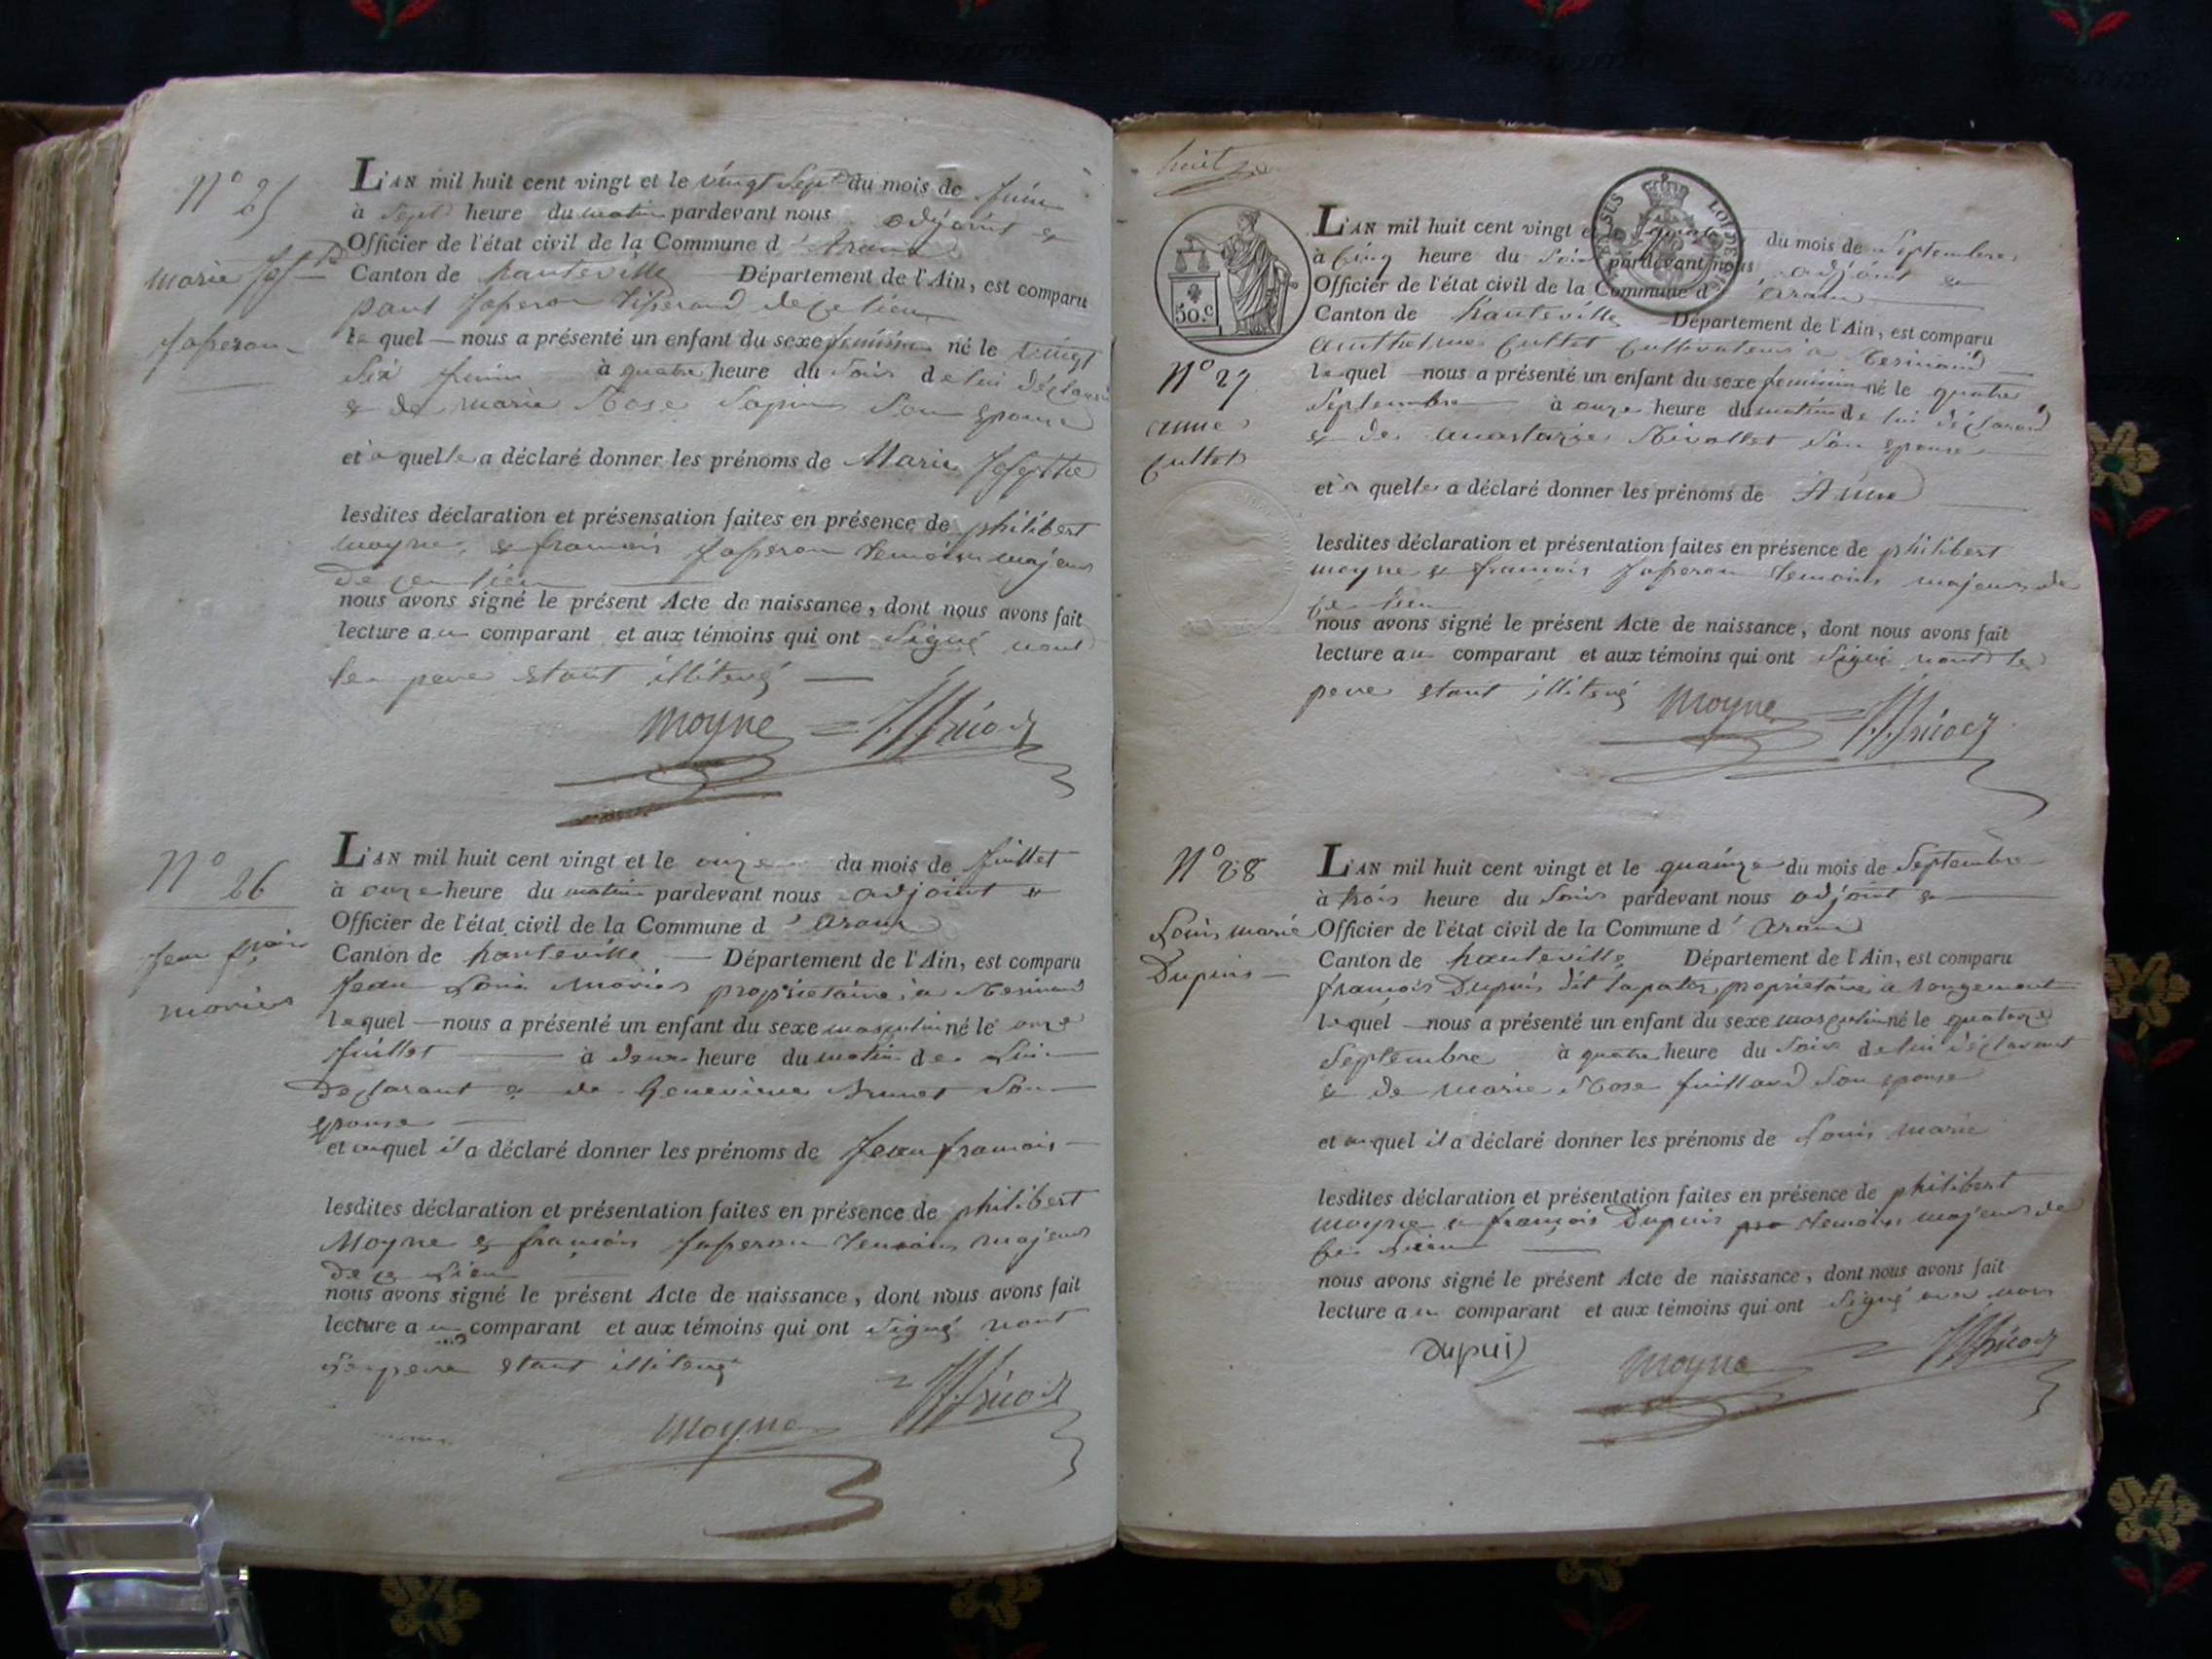 N° 25
Marie Josphte
Japeron
L'AN mil huit cent vingt et le vingt Sept du mois de Juin
à Sept heure du matin pardevant nous adjoint &
Officier de l'état civil de la Commune d'aranc
Canton de hauteville Département de l'Ain, est comparu
paul Japeron tisserand de ce lieu
lequel nous a présenté un enfant du sexe feminin né le vingt
Six Juin à quatre heure du Soir de lui déclarant
& de marie Rose Sapin Son epouse
et a quelle a déclaré donner les prénoms de Marie Josephte
lesdites déclaration et présensation faites en présence de philibert
moyne & francois Japeron temoins majeurs
de ce lieu
nous avons signé le présent Acte de naissance, dont nous avons fait
lecture au comparant et aux témoins qui ont Signé nont
le pere etant illiteré
moyne
N° 26
Jean fçois
moriers
L'AN mil huit cent vingt et le onze du mois de Juillet
à onze heure du matin pardevant nous adjoint &
Officier de l'état civil de la Commune d'aranc
Canton de hauteville Département de l'Ain, est comparu
Jean Louis propriétaire a
lequel nous a présenté un enfant du sexe masculin né le onze
Juillet à deux heure du matin de Lui
declarant & de Genevieve Brunet Son
epouse
et auquel il a déclaré donner les prénoms de Jean francois
lesdites déclaration et présentation faites en présence de philibert
Moyne & francois Japeron temoins majeurs
de ce Lieu
nous avons signé le présent Acte de naissance, dont nous avons fait
lecture au comparant et aux témoins qui ont Signé nont
le pere etant illiteré
moyne
huit
50.c
N° 27
anne
Cuttet
L'AN mil huit cent vingt et le du mois de Septembre
à Cinq heure du Soir pardevant nous adjoint &
Officier de l'état civil de la Commune d'aranc
Canton de hauteville Département de l'Ain, est comparu
anthelme Cuttet Cultivateur a
lequel nous a présenté un enfant du sexe feminin né le quatre
Septembre à onze heure du matin de lui déclarant
& de anastazie Rivollet Son epouse
et a quelle a déclaré donner les prénoms de Anne
lesdites déclaration et présentation faites en présence de philibert
moyne & francois Japeron temoins majeurs de
ce lieu
nous avons signé le présent Acte de naissance, dont nous avons fait
lecture au comparant et aux témoins qui ont Signé nont le
pere etant illiteré
moyne
N° 28
Louis marie
Dupuis
L'AN mil huit cent vingt et le quainze du mois de Septembre
à trois heure du Soir pardevant nous adjoint &
Officier de l'état civil de la Commune d'aranc
Canton de hauteville Département de l'Ain, est comparu
françois Dupuis dit propriétaire a rougemont
lequel nous a présenté un enfant du sexe masculin né le quatorze
Septembre à quatre heure du Soir de lui déclarant
& de marie Rose Juillard Son epouse
et auquel il a déclaré donner les prénoms de Louis marie
lesdites déclaration et présentation faites en présence de philibert
moyne & françois Dupuis temoins majeurs de
ce Lieu
nous avons signé le présent Acte de naissance, dont nous avons fait
lecture au comparant et aux témoins qui ont Signé avec nous
Dupuis
moyne